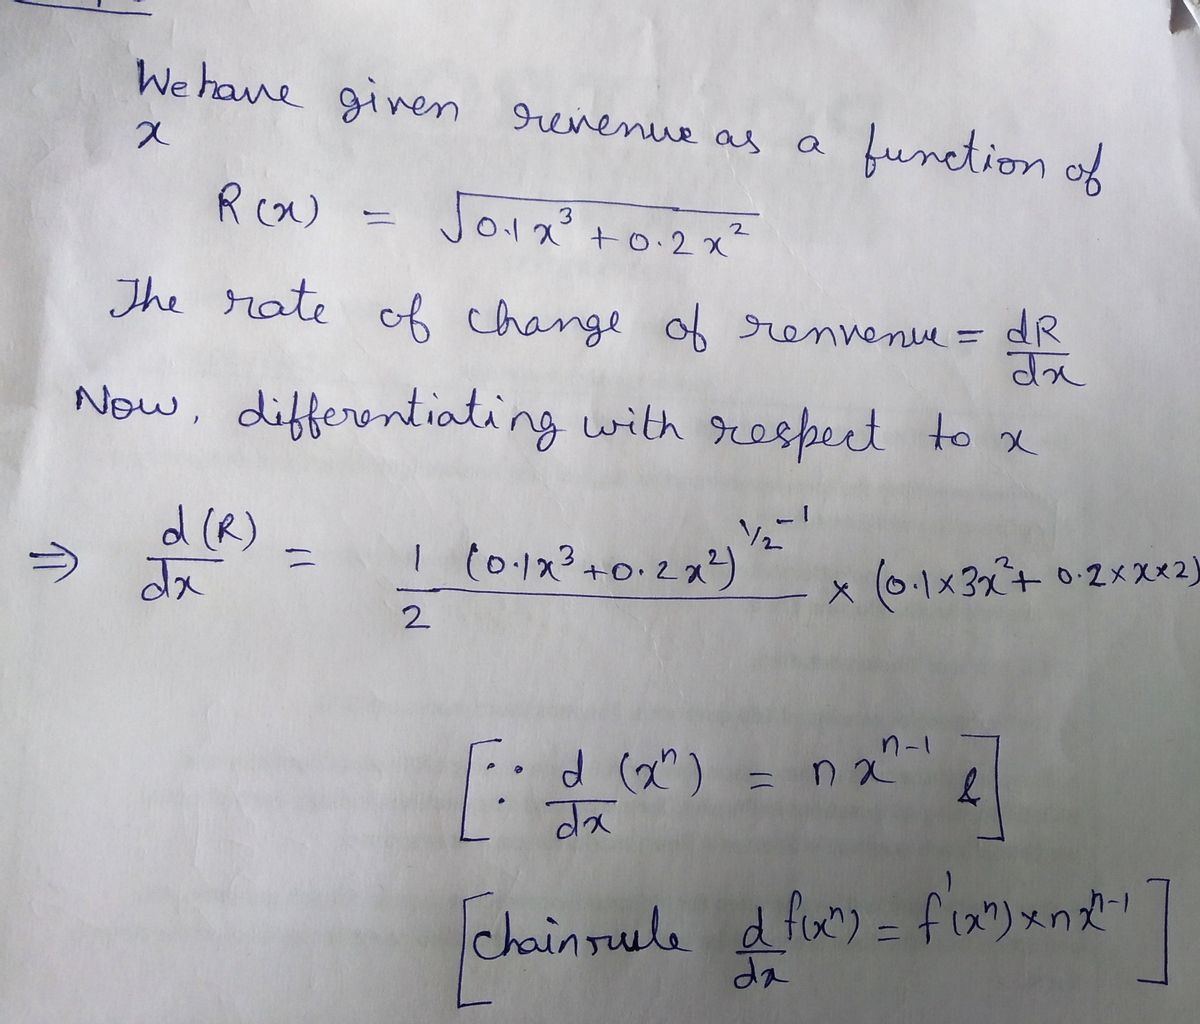 We have given revenue as a function of
x
R(x) = √0.1x³ + 0.2x²
The rate of change of renvenue = dR/dx
Now, differentiating with respect to x
⇒ d(R)/dx = 1/2 (0.1x³+0.2x²)^1/2-1 × (0.1×3x²+ 0.2×x×2)
[∵ d/dx (xⁿ) = n xⁿ⁻¹ &]
[chainrule d/dx f(xⁿ) = f'(xⁿ)×nxⁿ⁻¹]